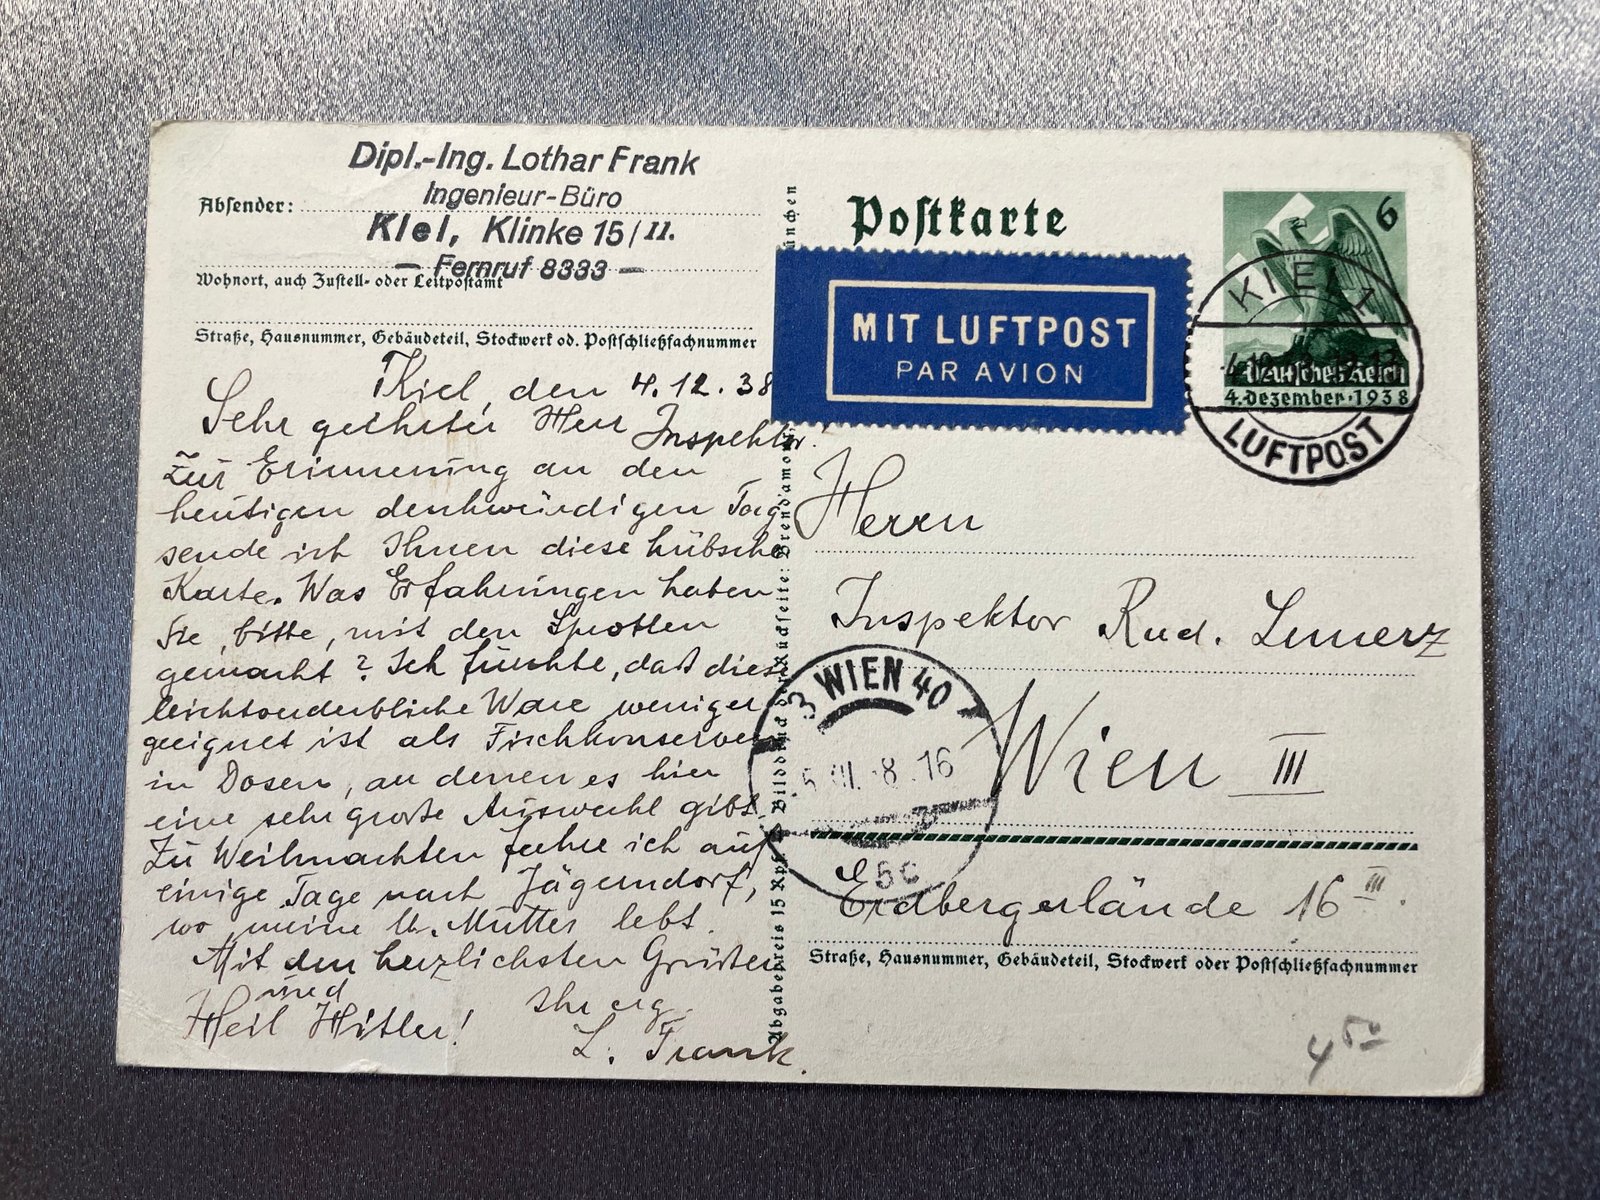 Dipl.-Ing. Lothar Frank
Ingenieur-Büro
Absender:
Kiel, Klinke 15/II.
— Fernruf 8333 —
Wohnort, auch Zustell- oder Leitpostamt
Straße, Hausnummer, Gebäudeteil, Stockwerk od. Postschließfachnummer
Kiel, den 4.12.38
Sehr geehrter Herr Inspektor!
Zur Erinnerung an den
heutigen denkwürdigen Tag
sende ich Ihnen diese hübsche
Karte. Was Erfahrungen haben
Sie, bitte, mit den Sprotten
gemacht? Ich fürchte, daß diese
leichtverderbliche Ware weniger
geeignet ist als Fischkonserven
in Dosen, an denen es hier
eine sehr große Auswahl gibt.
Zu Weihnachten fahre ich auf
einige Tage nach Jägerndorf,
wo meine lb. Mutter lebt.
Mit den herzlichsten Grüßen
und
Heil Hitler! Ihr erg.
L. Frank.
Abgabepreis 15 Rpf. Bilddruck der Rückseite: Brend'amour, München
Postkarte
MIT LUFTPOST
PAR AVION
6
Deutsches Reich
4. Dezember 1938
KIEL 1
LUFTPOST
Herrn
Inspektor Rud. Lemerz
3 WIEN 40
8.16
5c
Wien III
Erdbergerlände 16 III.
Straße, Hausnummer, Gebäudeteil, Stockwerk oder Postschließfachnummer